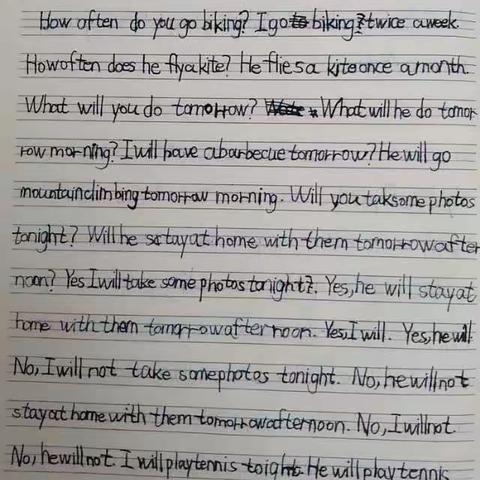 How often do you go biking? I go biking twice a week.
How often does he fly a kite? He flies a kite once a month.
What will you do tomorrow? What will he do tomor
row morning? I will have a barbecue tomorrow? He will go
mountain climbing tomorrow morning. Will you tak some photos
tonight? Will he stay at home with them tomorrow after
noon? Yes I will take some photos tonight. Yes, he will stay at
home with them tomorrow afternoon. Yes, I will. Yes, he will
No, I will not take some photos tonight. No, he will not
stay at home with them tomorrow afternoon. No, I will not.
No, he will not. I will play tennis toight. He will play tennis